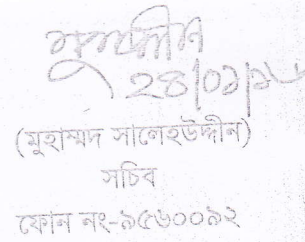 ২৪|০১|১৮
(মুহাম্মদ সালেহউদ্দীন)
সচিব
ফোন নং-৯৫৬০০৯২